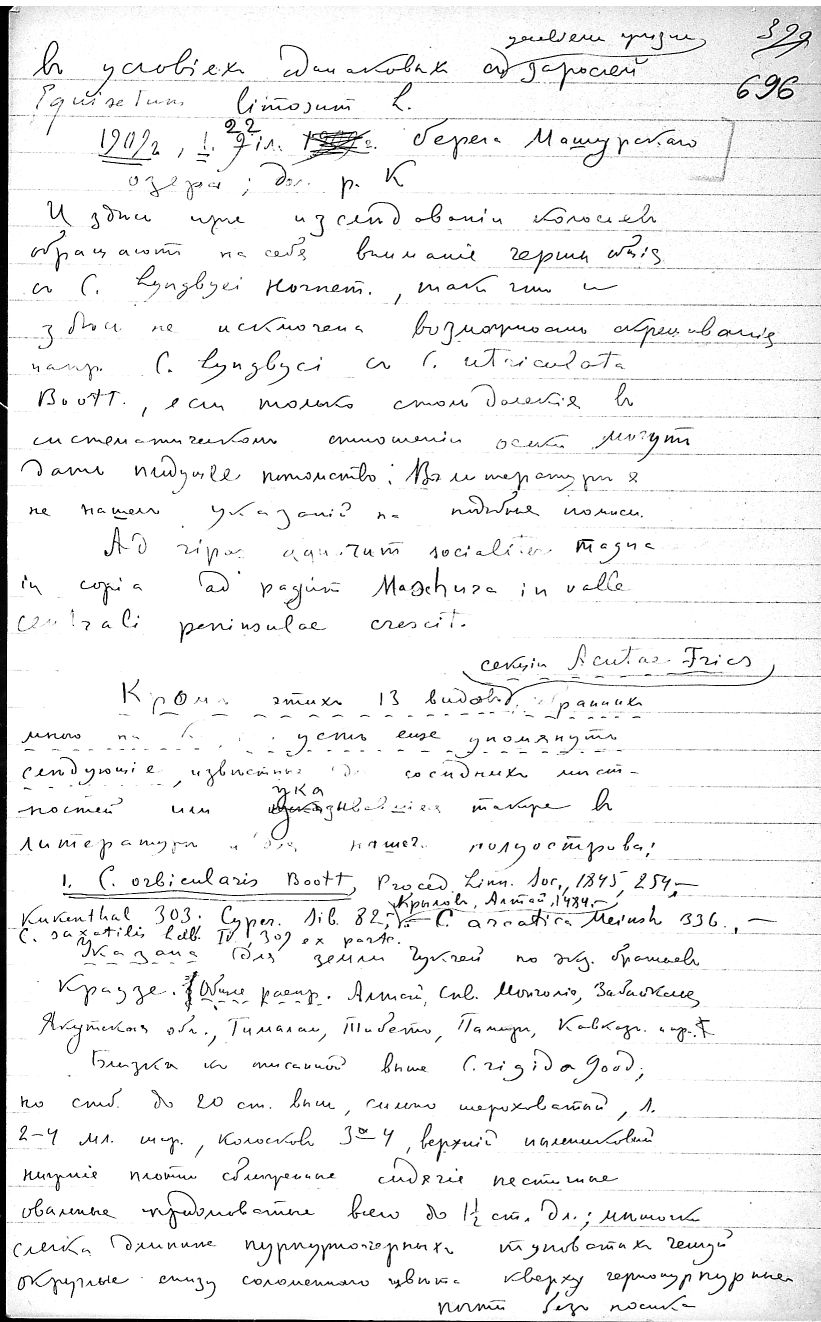 399
696
въ условіяхъ одинаковыхъ съ зарослей
Equisetum limosum L.
1909 г., 22 іл. берега Машурскаго
озера; дол. р. К
И здѣсь при изслѣдованіи колосьевъ
обращаютъ на себя вниманіе черты общія
съ C. Lyngbyei Hornem., такъ что и
здѣсь не исключена возможность скрещиванія
напр. C. Lyngbyei съ C. utriculata
Boott., если только столь далекія въ
систематическомъ отношеніи осоки могутъ
дать плодущее потомство; Въ литературѣ я
не нашелъ указаній на подобные помѣси.
Ad ripas aquarum socialiter magna
in copia ad pagum Maschura in valle
centrali peninsulae crescit.
секціи Acutae Fries
Кромѣ этихъ 13 видовъ, собранныхъ
мною на К упомянуть
слѣдующіе, извѣстные для сосѣднихъ мѣст-
ностей или указывавшіеся также въ
литературѣ и для нашего полуострова:
1. C. orbicularis Boott, Proced Linn. Soc., 1845, 254,—
Крыловъ, Алтай, 1484.—
Kükenthal 303. Cyper. Sib. 82, — C. arcatica Meinsh 336. —
C. saxatilis Ldb. IV, 309 ex parte.
Указана для земли Чукчей по экз. братьевъ
Краузе. Общее распр. Алтай, Сѣв. Монголія, Забайкалье
Якутская обл., Гималаи, Тибетъ, Памиръ, Кавказъ
Близка къ описанной выше C. rigida Good,
но стеб. до 20 см. выш., сильно шероховатый, л.
2-4 мл. шир., колосковъ 3-4, верхній тычинковый
нижніе почти сближенные сидячіе пестичные
овальные продолговатые всего до 1½ см. дл.; мѣшочки
слегка длиннѣе пурпурночерныхъ туповатыхъ чешуй
округлые снизу соломеннаго цвѣта кверху чернопурпурные
почти безъ носика